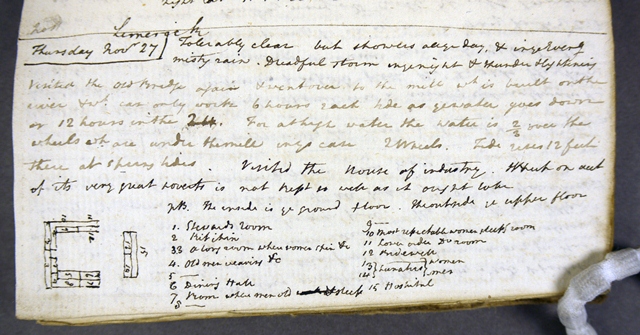 Limerick
Thursday Novr. 27 Tolerably clear but showers all ye day, & in ye Eveng
misty rain. Dreadful storm in ye night & thunder & lightning
Visited the Old Bridge again & went over to the mill wh is built on the
river & wh can only work 6 hours each tide as ye water goes down
or 12 hours in the 24. For at high water the water is 2/3 over the
wheels wh are under the mill in ye case 2 Wheels. Tide rises 12 feet
there at Spring tides Visited the House of industry. Which on acct
of its very great poverty is not kept so well as it ought to be.
NB. The inside is ye ground floor. The outside ye upper floor
1. Stewards room
2 Kitchin
33 A long room where women spin &c
4. Old men weavers &c
5
6 Dining Hall
7. Room where men old sleep
8
9
10 most respectable women sleep room
11 Lower order Do room
12 Bridewell
13 Lunatics Women
14 men
15 Hospital